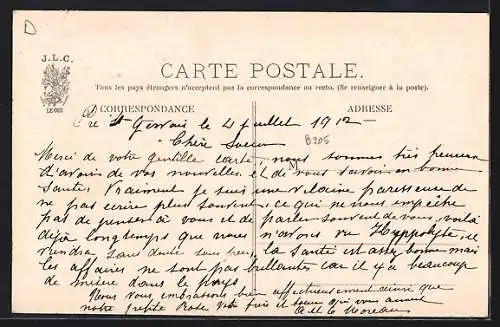 D
J.L.C.
CARTE POSTALE.
Tous les pays étrangers n'acceptent pas la correspondance au recto. (Se renseigner à la poste).
CORRESPONDANCE
ADRESSE
Pré St Gervais le 4 Juillet 1912
B205
Chère Soeur
Merci de votre gentille carte, nous sommes très heureux
d'avoir de vos nouvelles et de vous savoir en bonne
santé. Vraiment je suis une vilaine paresseuse de
ne pas écrire plus souvent, ce qui ne nous empêche
pas de penser à vous et de parler souvent de vous, voilà
déjà longtemps que nous n'avons vu Hyppolyte, il
viendra sans doute sans peu, la santé est assez bonne mais
les affaires ne sont pas brillantes car il y a beaucoup
de misère dans le pays
Nous vous embrassons bien affectueusement ainsi que
notre petite Rose. Votre frère et soeur qui vous aiment
Moreau